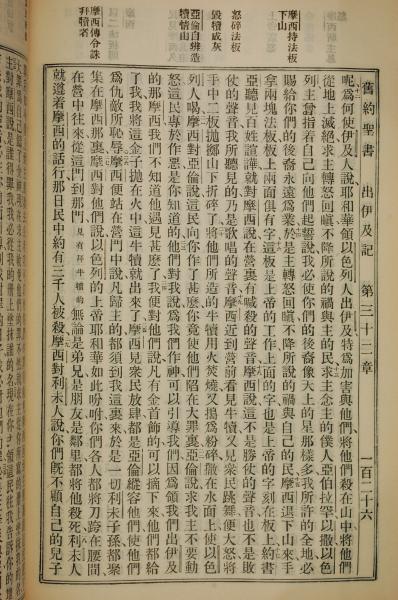 舊約聖書　出伊及記　第三十二章　一百二十六
呢爲何使伊及人說耶和華領以色列人出伊及特爲加害與他們將他們殺在山中將他們
從地上滅絕求主轉怒回嗔不降所說的禍與主的民求主念主的僕人亞伯拉罕以撒以色
列主曾指着自己向他們起誓說我必使你們的後裔像天上的星那樣多我所許的全地必
賜給你們的後裔永遠爲業於是主轉怒回嗔不降所說的禍與自己的民摩西退下山來手
拿兩塊法板板上兩面俱有字這板是上帝的工作上面的字也是上帝的字刻在板上約書
亞聽見百姓諠譁就對摩西說在營裏有喊殺的聲音摩西說這不是勝仗的聲音也不是敗
仗的聲音我所聽見的乃是歌唱的聲音摩西近到營前看見牛犢又見衆民跳舞便大怒將
手中二板拋擲山下折碎了將他們所造的牛犢用火焚燒又搗爲粉碎撒在水面上使以色
列人喝摩西對亞倫說這民向你作了甚麼你竟使他們陷在大罪裏亞倫說求我主不要動
怒這民專於作惡是你知道的他們對我說爲我們作神可以引導我們因爲領我們出伊及
的那摩西我們不知道他遇見甚麼了我便對他們說凡有金首飾的可以摘下來他們都給
了我我將這金子拋在火中這牛犢就出來了摩西見衆民放肆都是亞倫縱容他們使他們
爲仇敵所恥辱摩西便站在營門中說凡歸主的都須到我這裏來於是一切利未子孫都聚
集在摩西那裏摩西對他們說以色列的上帝耶和華如此吩咐你們各人都將刀跨在腰間
在營中往來從這門到那門見有拜牛犢的無論是弟兄是朋友是鄰里都將他殺死利未人
就遵着摩西的話行那日民中約有三千人被殺摩西對利未人說你們旣不顧自己的兒子
摩西持法板
下山
怒碎法板
毀犢成灰
亞倫自辨造
犢情由
摩西傳令誅
拜犢者